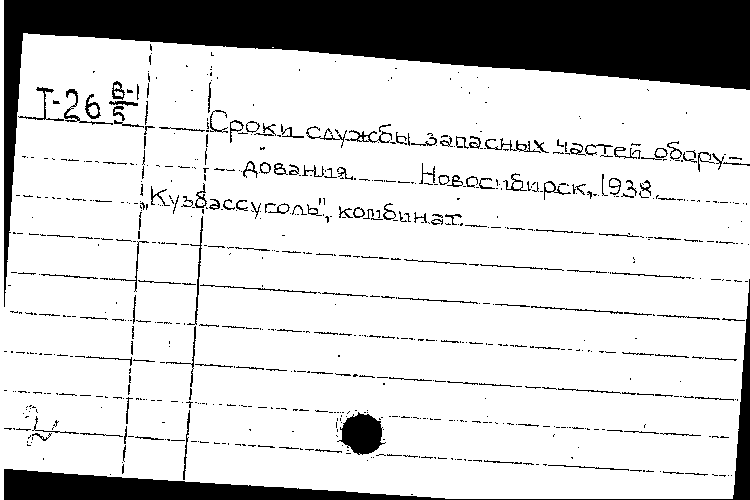 Т-26 В-1/5
Сроки службы запасных частей обору-
дования. Новосибирск, 1938.
„Кузбассуголь", комбинат.
2